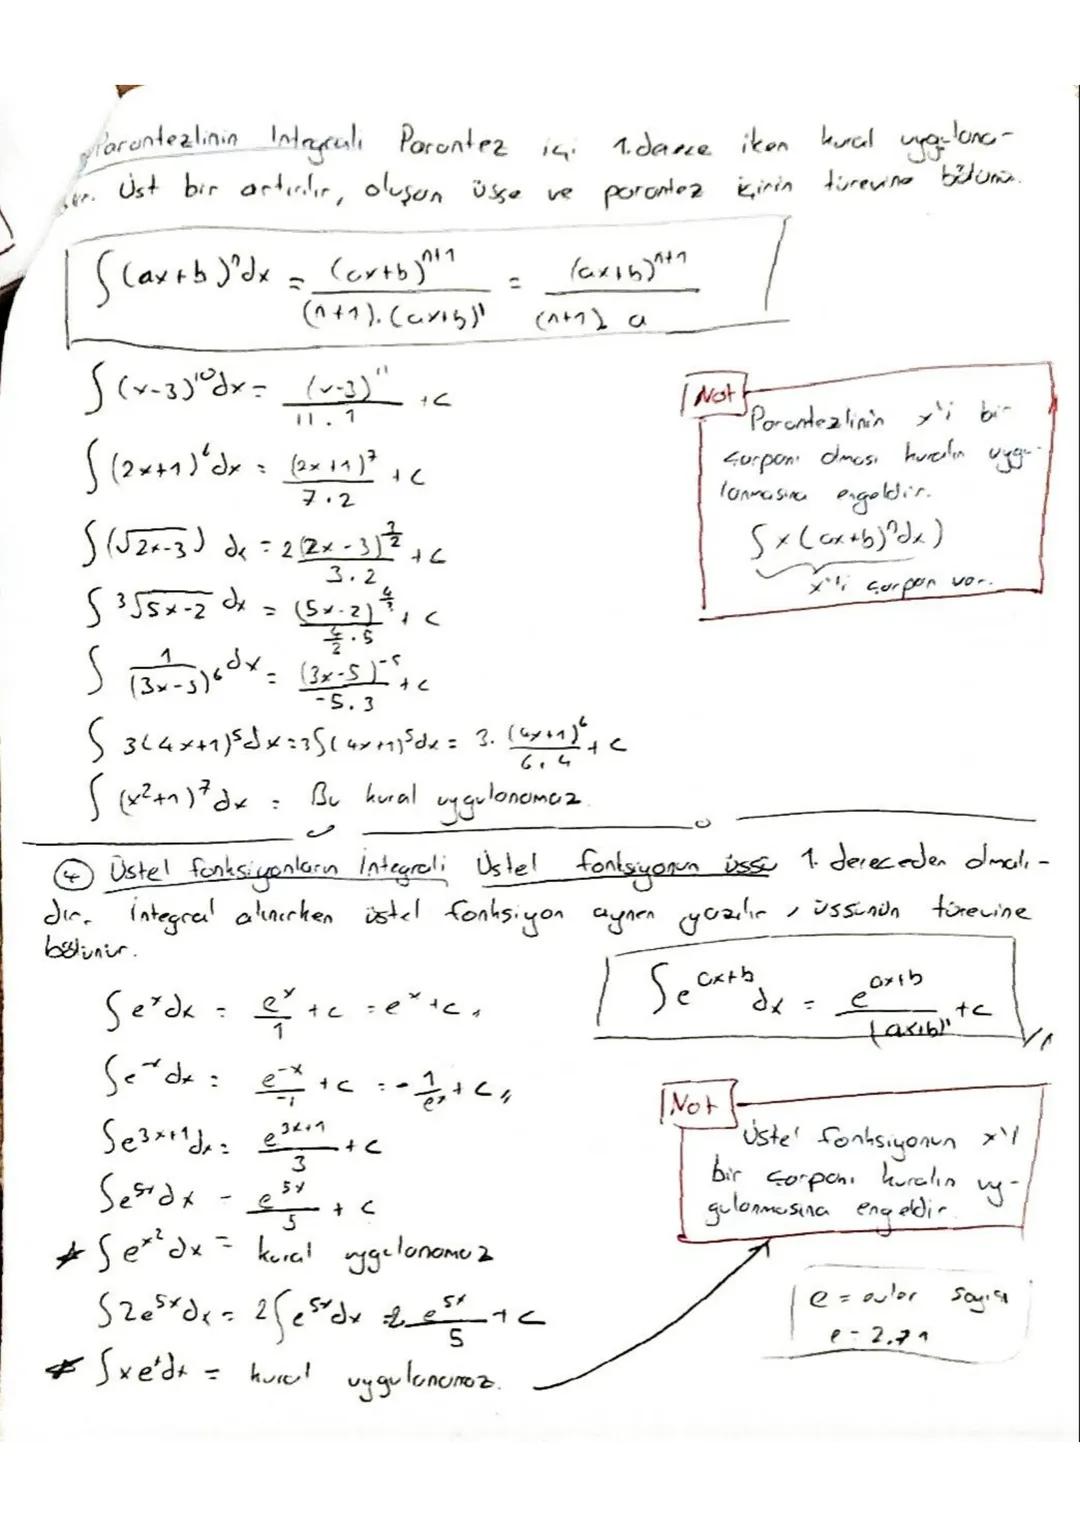 Parantezlinin İntegrali Parantez içi 1.derece iken kural uygulanı-
Üst bir artırılır, oluşan üsse ve parantez içinin türevine bölünür.
∫(ax+b)ⁿdx = (ax+b)ⁿ⁺¹/(n+1).(ax+b)' = (ax+b)ⁿ⁺¹/(n+1) a
∫(x-3)¹⁰dx = (x-3)¹¹/11.1 +c
∫(2x+1)⁶dx = (2x+1)⁷/7.2 +c
∫(√2x-3) dx = 2(2x-3)^(3/2)/3.2 +c
∫ ³√5x-2 dx = (5x-2)^(4/3)/.5 +c
∫ 1/(3x-5)⁶ dx = (3x-5)⁻⁵/-5.3 +c
∫ 3(4x+1)⁵dx = 3∫(4x+1)⁵dx = 3. (4x+1)⁶/6.4 +c
∫ (x²+1)⁷dx = Bu kural uygulanamaz.
Not
Parantezlinin x'li bir
çarpanı olması kuralın uygu-
lanmasına engeldir.
∫x(ax+b)ⁿdx)
x'li çarpan var.
④ Üstel fonksiyonların İntegrali Üstel fonksiyonun üssü 1. dereceden olmalı-
dır. İntegral alınırken üstel fonksiyon aynen yazılır, üssünün türevine
bölünür.
∫e^(ax+b) dx = e^(ax+b)/(ax+b)' +c
∫eˣdx = eˣ/1 +c = eˣ+c
∫e⁻ˣdx = e⁻ˣ/-1 +c = -1/eˣ +c
∫e³ˣ⁺¹dx = e³ˣ⁺¹/3 +c
∫e⁵ˣdx = e⁵ˣ/5 +c
∫e^x² dx = kural uygulanamaz
∫2e⁵ˣdx = 2∫e⁵ˣdx = 2. e⁵ˣ/5 +c
∫xeˣdx = kural uygulanamaz.
Not
Üstel fonksiyonun x'li
bir çarpanı kuralın uy-
gulanmasına engeldir.
e = euler sayısı
e = 2.71